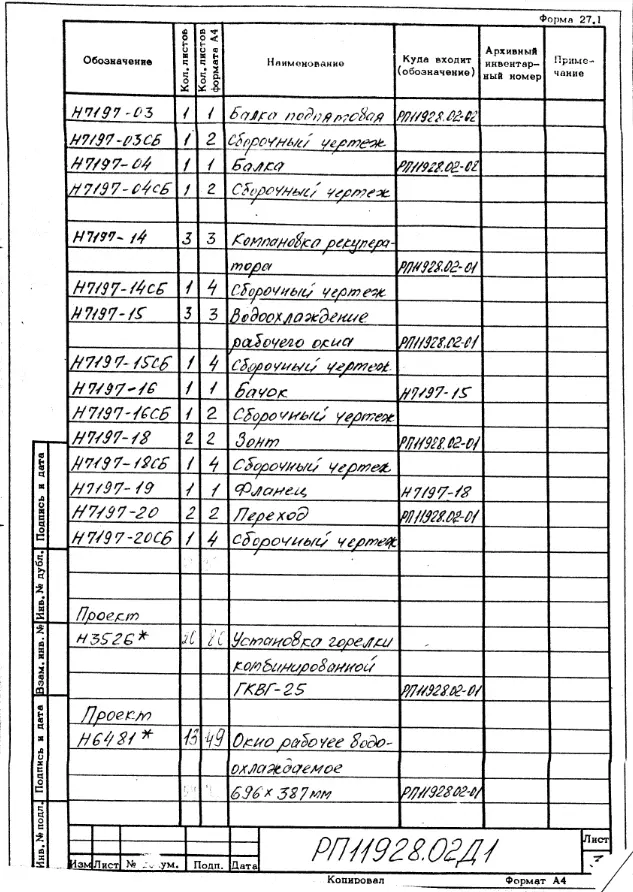 Форма 27.1
Обозначение Кол. листов Кол. листов формата А4 Наименование Куда входит (обозначение) Архивный инвентарный номер Примечание
Н7197-03 1 1 Балка подпятовая РП11928.02-02
Н7197-03СБ 1 2 Сборочный чертеж
Н7197-04 1 1 Балка РП11928.02-02
Н7197-04СБ 1 2 Сборочный чертеж
Н7197-14 3 3 Компановка рекупера-
тора РП11928.02-01
Н7197-14СБ 1 4 Сборочный чертеж
Н7197-15 3 3 Водоохлаждение
рабочего окна РП11928.02-01
Н7197-15СБ 1 4 Сборочный чертеж
Н7197-16 1 1 Бачок Н7197-15
Н7197-16СБ 1 2 Сборочный чертеж
Н7197-18 2 2 Зонт РП11928.02-01
Н7197-18СБ 1 4 Сборочный чертеж
Н7197-19 1 1 Фланец Н7197-18
Н7197-20 2 2 Переход РП11928.02-01
Н7197-20СБ 1 4 Сборочный чертеж
Проект
Н3526* Установка горелки
комбинированной
ГКВГ-25 РП11928.02-01
Проект
Н6481* 13 49 Окно рабочее водо-
охлаждаемое
696×387мм РП11928.02-01
Инв.№ подл. Подпись и дата Взам. инв. № Инв.№ дубл. Подпись и дата
РП11928.02Д1
Лист
3
Изм Лист № ум. Подп. Дата
Копировал Формат А4